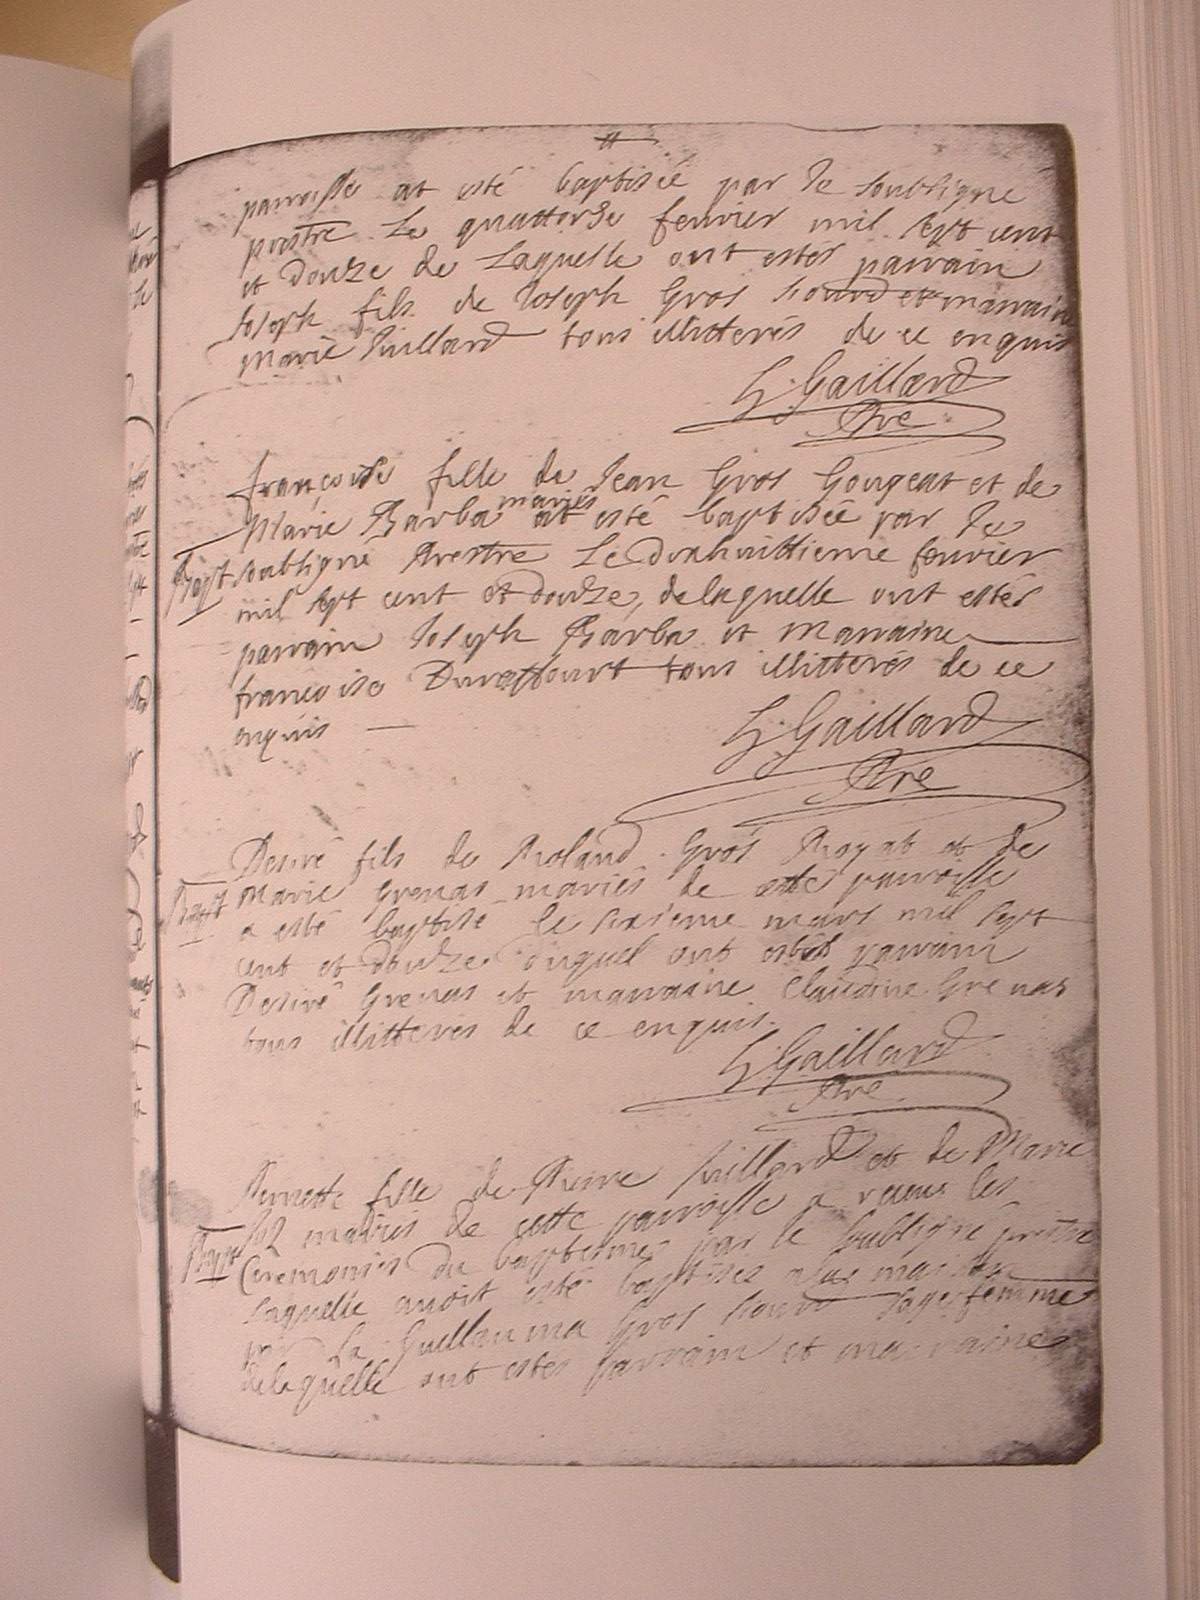 paroisse at esté baptisée par le soubsigne
prestre Le quattorse fevrier mil sept cent
et douze de Laquelle ont estés parrain
Joseph fils de Joseph Gros et marraine
Marie Puillard tous illitterés de ce enquis
Gaillard
Pre
françoise fille de Jean Gros Gougeat et de
Marie Barba mariés at esté baptisée par le
Bapt soubsigné Prestre Le dixhuittieme fevrier
mil sept cent et douze, de laquelle ont estés
parrain Joseph Barba et marraine
francoise tous illitterés de ce
enquis
Gaillard
Pre
Desiré fils de Roland Gros et de
Bapt Marie Grenas mariés de cette paroisse
a esté baptisé le sixieme mars mil sept
cent et douze duquel ont estés parrain
Desiré Grenas et marraine Claudine Grenas
tous illitterés de ce enquis.
Gaillard
Pre
Pernette fille de Pierre Puillard et de Marie
Bapt mariés de cette paroisse a receus les
Ceremonies du baptesme par le soubsigné prestre
laquelle avoit esté baptisée a la maison
par la Guillauma Gros sage femme
de laquelle ont estés parrain et marraine